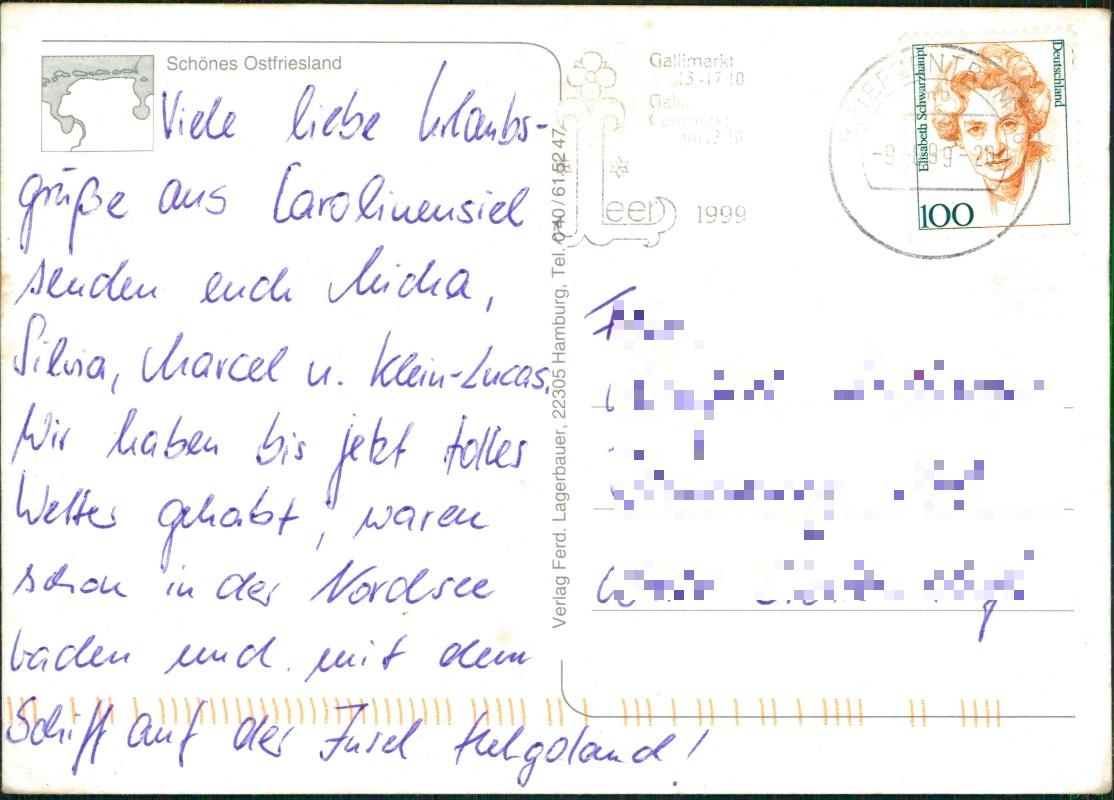 Schönes Ostfriesland
Viele liebe Urlaubs-
grüße aus Carolinensiel
senden euch Micha,
Silvia, Marcel u. Klein-Lucas.
Wir haben bis jetzt tolles
Wetter gehabt, waren
schon in der Nordsee
baden und mit dem
Schiff auf der Insel Helgoland!
Verlag Ferd. Lagerbauer, 22305 Hamburg, Tel. 040/61 52 47
Gallimarkt
13.-17.10
Galli-
am 13.10
Leer
1999
BRIEFZENTRUM
Elisabeth Schwarzhaupt
Deutschland
100